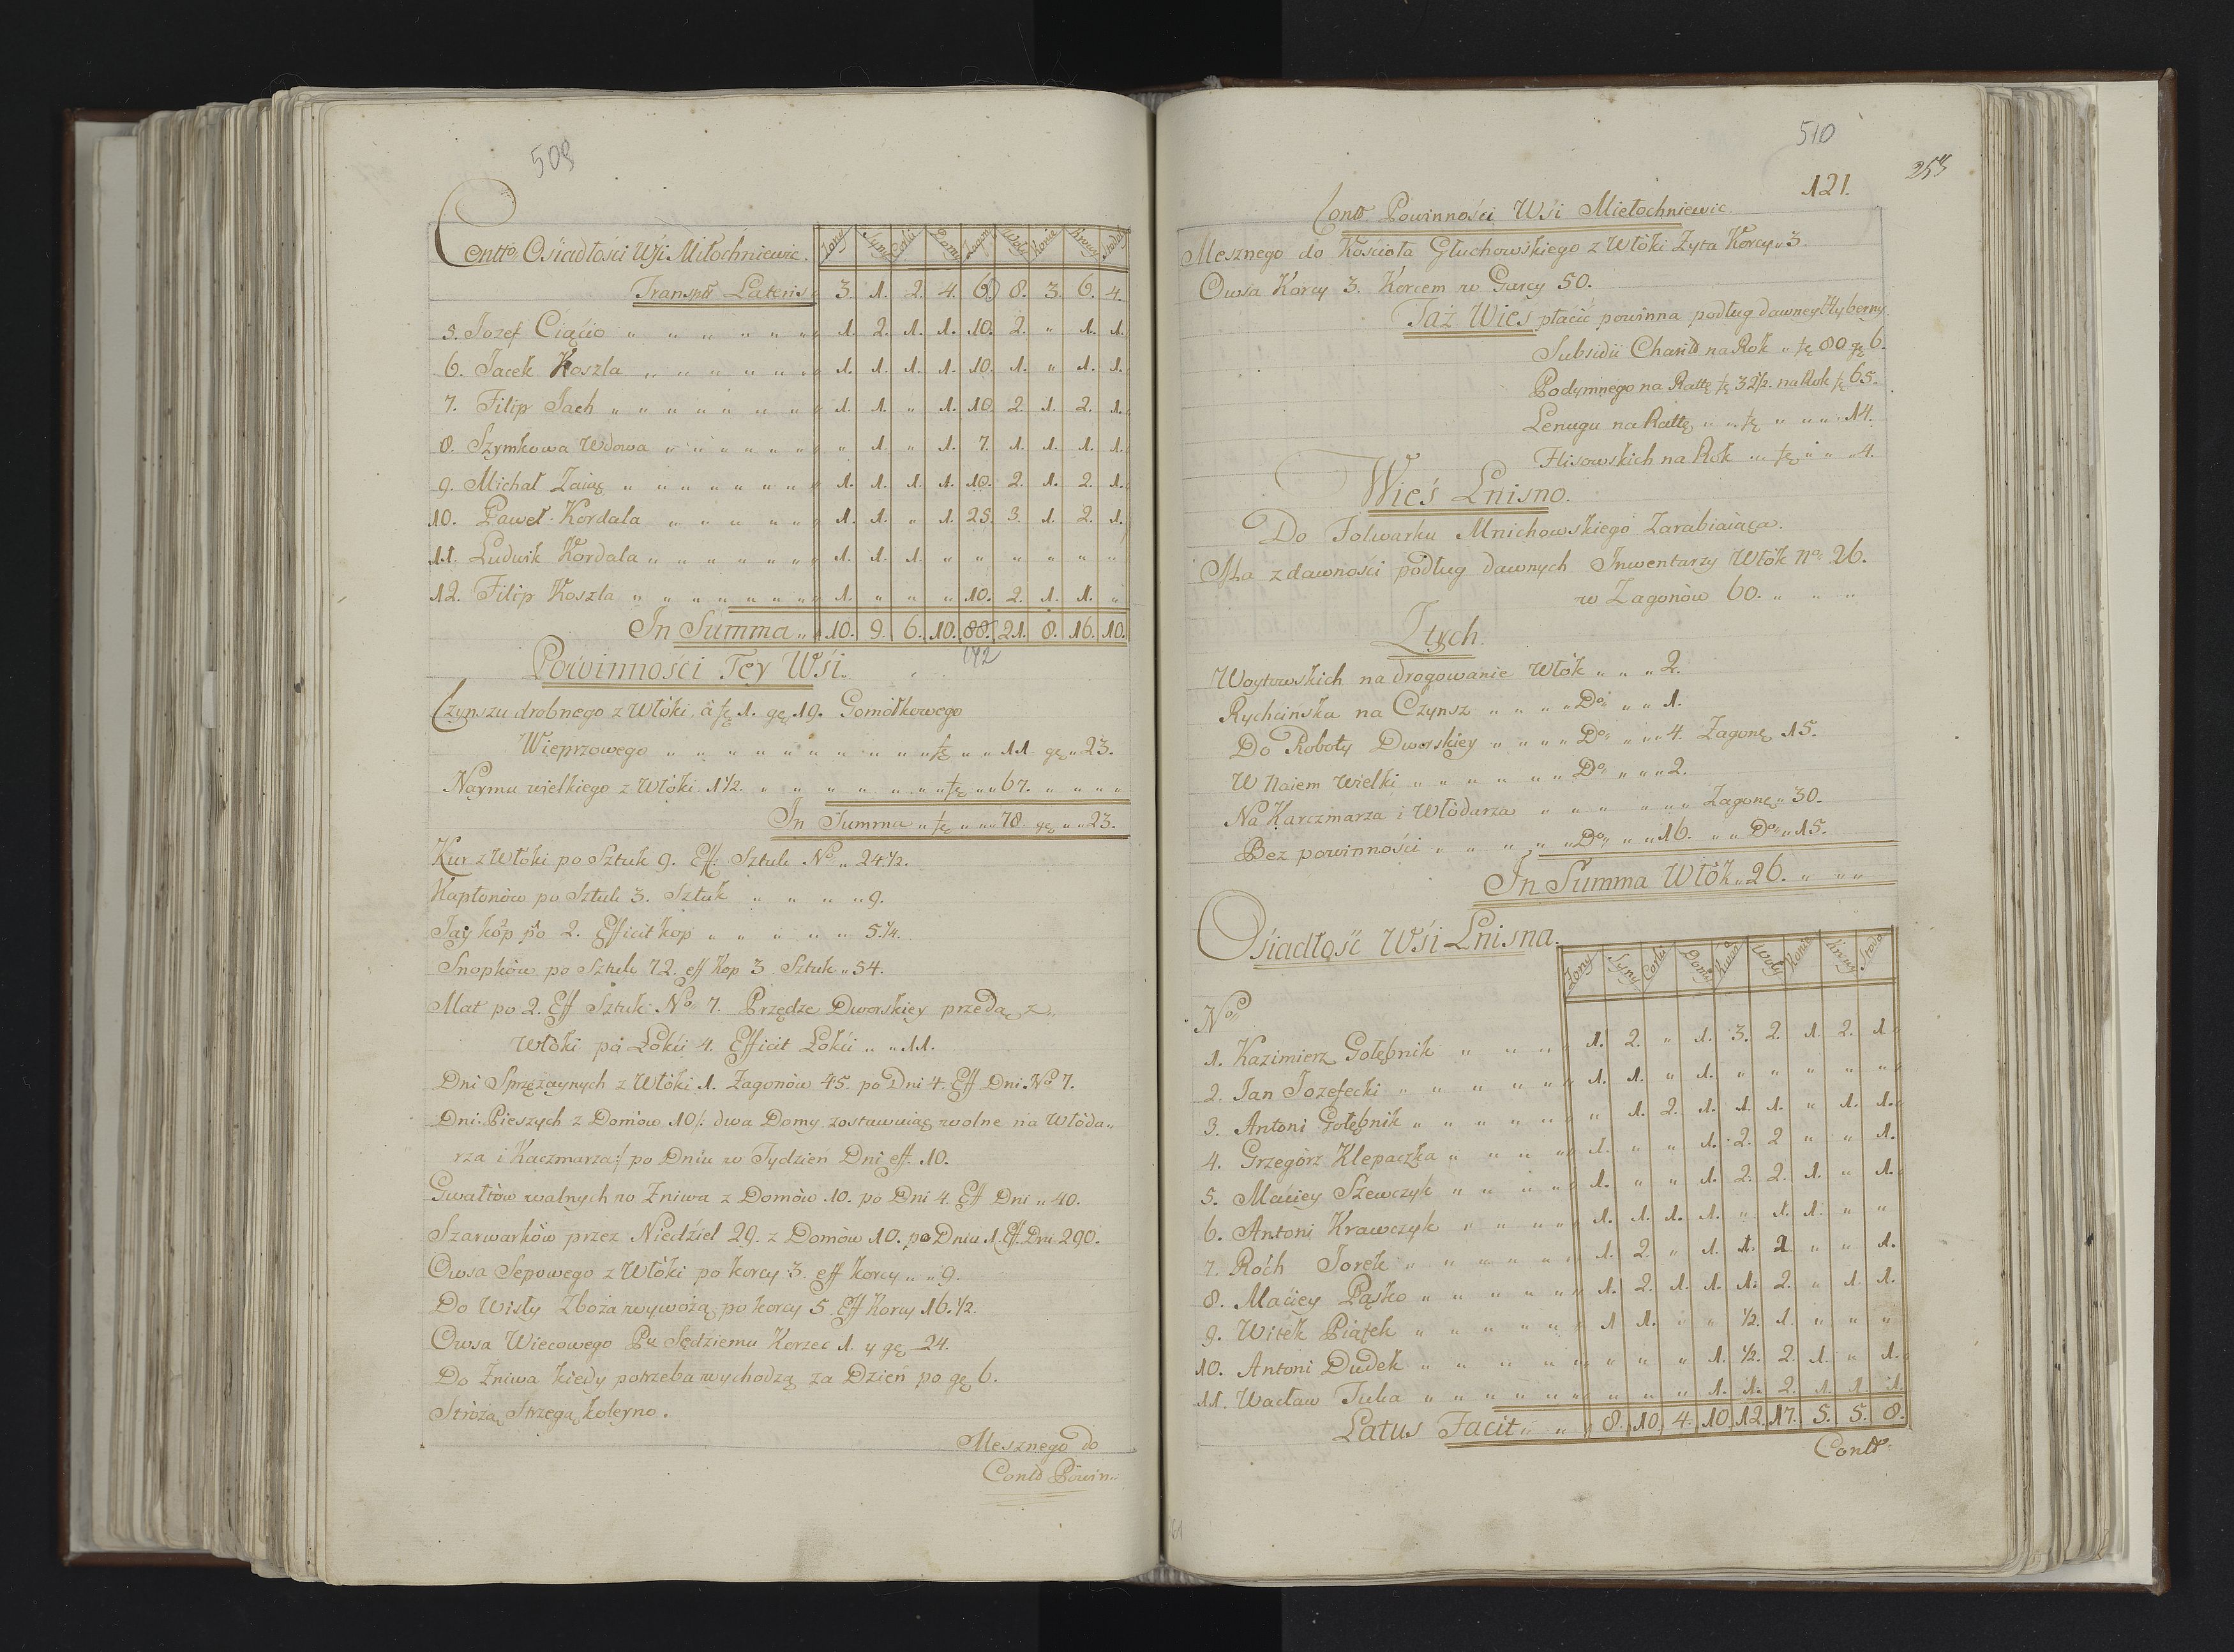 509
Contto Osiadłości Wśi Miłochniewic. Zony Syny Corki Domy Zagon Woły Konie Krowy Stodoły
Transpt Lateris 3. 1. 2. 4. 6. 8. 3. 6. 4.
5. Jozef Ciącio " " " " " " " 1. 2. 1. 1. 10. 2. " 1. 1.
6. Jacek Koszla " " " " " " " 1. 1. 1. 1. 10. 1. " 1. 1.
7. Filip Jach " " " " " " " " 1. 1. " 1. 10. 2. 1. 2. 1.
8. Szymkowa Wdowa " " " " " " " 1. " 1. 7. 1. 1. 1. 1.
9. Michał Zaiąç " " " " " " " 1. 1. 1. 1. 10. 2. 1. 2. 1.
10. Paweł Kordala " " " " " " 1. 1. " 1. 25. 3. 1. 2. 1.
11. Ludwik Kordala " " " " " " 1. 1. 1. " " " " " "
12. Filip Koszla " " " " " " " 1. " " " 10. 2. 1. 1. "
In Summa " 10. 9. 6. 10. 88. 21. 8. 16. 10.
Powinności Tey Wśi.
Czynszu drobnego z Włóki, à fę 1. gę 19. Gomółkowego
Wieprzowego " " " " " " " " " fę " " 11. gę " 23.
Naymu wielkiego z Włóki 1½. " " " " " " " fę " " 67. " " " "
In Summa " fę " " " 78. gę " " 23.
Kur z Włóki po Sztuk 9. Eff. Sztuk No " 24½.
Kapłonów po Sztuk 3. Sztuk " " " " 9.
Jay kóp po 2. Efficit kop " " " " " 5.¼.
Snopków po Sztuk 72. eff Kop 3. Sztuk " 54.
Mat po 2. Eff Sztuk No 7. Przędze Dworskiey przedą z "
Włóki po Łokci 4. Efficit Łokci " " 11.
Dni Sprzężaynych z Włóki 1. Zagonów 45. po Dni 4. Eff Dni No 7.
Dni Pieszych z Domów 10/: dwa Domy zostawuiąc wolne na Włóda "
rza i Kaczmarza:/ po Dniu w Tydzień Dni eff. 10.
Gwałtów walnych w Żniwa z Domów 10. po Dni 4. Eff Dni " 40.
Szarwarków przez Niedźiel 29. z Domów 10. po Dniu 1. Eff. Dni 290.
Owsa Sepowego z Włóki po korcy 3. eff korcy " " 9.
Do Wisły Zboża wywożą po korcy 5. Eff Korcy 16.½.
Owsa Wiecowego Pu Sędziemu Korzec 1. y gę 24.
Do Żniwa kiedy potrzeba wychodzą za Dzień po gę 6.
Stróżą Strzegą koleyno.
Mesznego do
Contto Powin "
510
121.
Contto Powinności Wśi Miełochniewic.
Mesznego do Kościoła Głuchowskiego z Włóki Zyta Korcy " 3.
Owsa Korcy 3. Korcem w Garcy 50.
Taż Wieś płacić powinna podług dawney Hyberny.
Subsidii Charit na Rok " fę 80 gę 6.
Podymnego na Rattę fę 32½. na Rok fę 65.
Lenugu na Rattę " " fę " " " " 14.
Flisowskich na Rok " fę " " " 4.
Wieś Lnisno.
Do Folwarku Mnichowskiego Zarabiaiąca.
Ma z dawności podług dawnych Inwentarzy Włók no 26.
w Zagonów 60. " " "
Z tych.
Woytowskich na drogowanie Włók " " " 2.
Rychcińska na Czynsz " " " " Do " " 1.
Do Roboty Dworskiey " " " " Do " " " 4. Zagonę 15.
W Naiem Wielki " " " " " " Do " " " 2.
Na Karczmarza i Włódarza " " " " " " Zagonę " 30.
Bez powinności " " " " " Do " " 16. " " Do " 15.
In Summa Włók " 26. " " "
Osiadłość Wśi Lnisna. Zony Syny Corki Domy Woły Konie Krowy
No
1. Kazimierz Gołębnik " " " " 1. 2. " 1. 3. 2. 1. 2. 1.
2. Jan Jozefecki " " " " " " 1. 1. " 1. " " " " "
3. Antoni Gołębnik " " " " " " 1. 2. 1. 1. 1. " 1. 1.
4. Grzegórz Klepaczka " " " " 1. " " 1. 2. 2 " " 1.
5. Maciey Szewczyk " " " " 1. " " 1. 2. 2. 1. " 1.
6. Antoni Krawczyk " " " " 1. 1. 1. 1. " 1. 1. " "
7. Róch Jorek " " " " " " 1. 2. " 1. 1. 2. " " 1.
8. Maciey Pąsko " " " " " " 1. 2. 1. 1. 1. 2. " 1. 1.
9. Witek Piątek " " " " " " 1 1. " " ½. 1. " " "
10. Antoni Dudek " " " " " " " " 1. ½. 2. 1. " 1.
11. Wacław Tuba " " " " " " " " " 1. 1. 2. 1. 1. 1.
Latus Facit " " " 8. 10. 4. 10. 12. 17. 5. 5. 8.
Contto